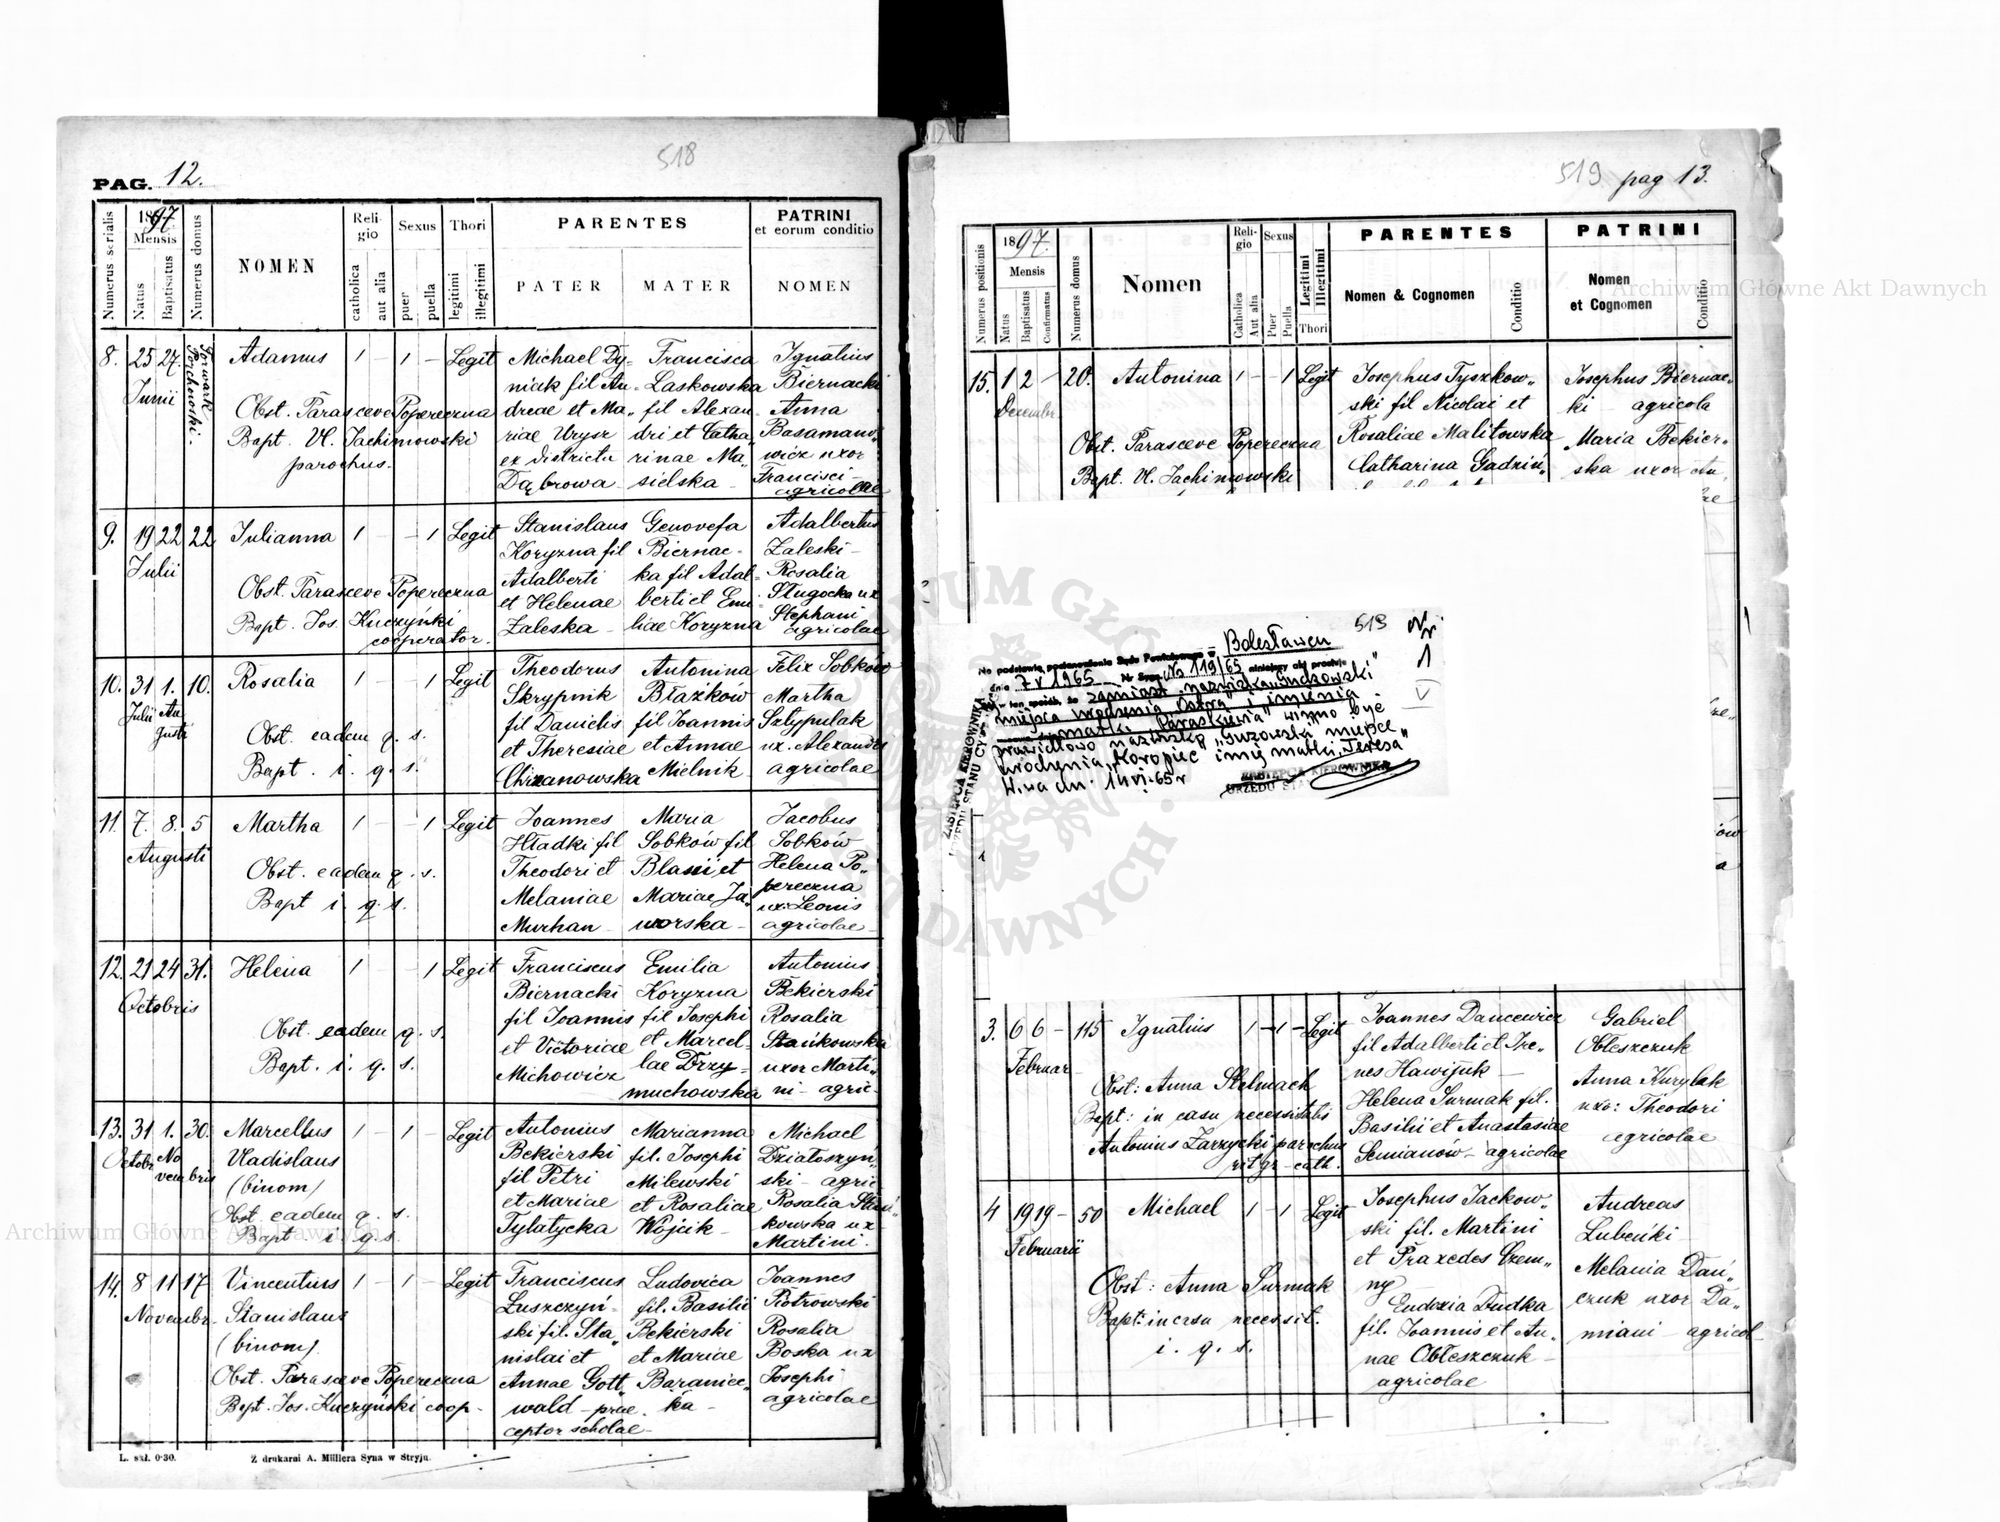 518
PAG. 12.
Numerus serialis
1897
Mensis
Natus
Baptisatus
Numerus domus
NOMEN
Reli-
gio
catholica
aut alia
Sexus
puer
puella
Thori
legitimi
illegitimi
PARENTES
PATER MATER
PATRINI
et eorum conditio
NOMEN
8. 25 27. Forwark Adamus 1 - 1 - Legit Michael Dy- Francisca Ignatius
Junii niak fil An- Laskowska Biernacki
Obst. Parasceve Popereczna dreae et Ma- fil Alexan- Anna
Bapt. Vl. Jachimowski riae Urysz dri et Catha- Basamano-
parochus. ex districtu rinae Ma- wicz uxor
Dąbrowa - sielska - Francisci -
agricolae
9. 19 22 22 Julianna 1 - - 1 Legit Stanislaus Genovefa Adalbertus
Julii Koryzna fil Biernac- Zaleski -
Obst. Parasceve Popereczna Adalberti ka fil Adal- Rosalia
et Helenae berti et Emi- Sługocka ux
Bapt. Jos. Kuczyński Zaleska - liae Koryzna Stephani
cooperator. agricolae
10. 31 1. 10. Rosalia 1 - - 1 Legit Theodorus Antonina Felix Sobków
Julii Au- Skrypnik Błażków Martha
gusti fil Danielis fil Joannis Sztypulak
Obst. eadem q. s. et Theresiae et Annae ux. Alexandri
Bapt. i. q. s. Chrzanowska Mielnik - agricolae
11. 7. 8. 5 Martha 1 - - 1 Legit Joannes Maria Jacobus
Augusti Hładki fil Sobków fil Sobków
Obst. eadem q. s. Theodori et Blasii et Helena Po-
pereczna
Bapt i. q. s. Melaniae Mariae Ja- ux: Leonis
Murhan - worska - agricolae -
12. 21 24 31. Helena 1 - - 1 Legit Franciscus Emilia Antonius
Octobris Biernacki Koryzna Bekierski
fil Joannis fil Josephi Rosalia
Obst. eadem q. s. et Victoriae et Marcel- Stańkowska
Bapt. i. q. s. Michowicz lae Drzy- uxor Marti-
muchowska ni - agric -
13. 31 1. 30. Marcellus 1 - 1 - Legit Antonius Marianna Michael
Octobr. No- Vladislaus Bekierski fil. Josephi Działoszyń-
vembris (binom) fil Petri Milewski ski - agric
Obst eadem q. s. et Mariae et Rosaliae Rosalia Stań-
Bapt i. q. s. Tylatycka Wójcik - kowska ux
Martini.
14. 8 11 17 Vincentius 1 - 1 - Legit Franciscus Ludovica Joannes
Novembr. Stanislaus Łuszczyń- fil. Basilii Piotrowski
(binom) ski fil. Sta- Bekierski Rosalia
nislai et et Mariae Boska ux
Obst. Parasceve Popereczna Annae Gott- Baraniec- Josephi
Bapt. Jos. Kuczyński coop - wald - prae- ka - agricolae
ceptor scholae -
L. skł. 0·30. Z drukarni A. Müllera Syna w Stryju.
519 pag 13.
Numerus positionis
1897.
Mensis
Natus
Baptisatus
Confirmatus
Numerus domus
Nomen
Reli-
gio
Catholica
Aut alia
Sexus
Puer
Puella
Legitimi
Illegitimi
Thori
PARENTES
Nomen & Cognomen
Conditio
PATRINI
Nomen
et Cognomen
Conditio
15. 1 2 - 20. Antonina 1 - - 1 Legit Josephus Tyszkow- Josephus Biernac-
Decembr. ski fil Nicolai et ki - agricola
Obst. Parasceve Popereczna Rosaliae Malitowska Maria Bekier-
Bapt. Vl. Jachimowski Catharina Gadziń- ska uxor An-
519 Nr
1
V
Na podstawie postanowienia Sądu Powiatowego w Bolesławcu
dnia 7 V 1965 Nr Spr. Ns 119/65 niniejszy akt prostuje
się w ten sposób, że zamiast nazwiska "Gudzowski"
miejsca urodzenia "Ostra" i imienia
matki "Paraskiewia" winno być
prawidłowo nazwisko "Guzowski" miejsce
urodzenia "Koropiec" imię matki "Teresa"
dn. 14 VI 65 r
ZASTĘPCA KIEROWNIKA
URZĘDU STA
ZASTĘPCA KIEROWNIKA
URZĘDU STANU CY
3. 6 6 - 115 Ignatius 1 - 1 - Legit Joannes Dancewicz Gabriel
Februar. fil Adalberti et Ire- Obłeszczuk
nes Hawijuk - Anna Kurylak
Obst: Anna Stelmach Helena Surmak fil. uxo: Theodori
Bapt: in casu necessitatis Basilii et Anastasiae agricolae
Antonius Zarzycki parochus Semianów - agricolae
rit gr - cath.
4 19 19 - 50 Michael 1 - 1 - Legit Josephus Jackow- Andreas
Februarii ski fil. Martini Lubeńki -
et Praxedes Czem- Melania Dań-
Obst: Anna Surmak ny czuk uxor Da-
Bapt: in casu necessit. Eudoxia Dudka miani - agricol
i. q. s. fil. Joannis et An-
nae Obłeszczuk -
agricolae
Archiwum Główne Akt Dawnych
Archiwum Główne Akt Dawnych